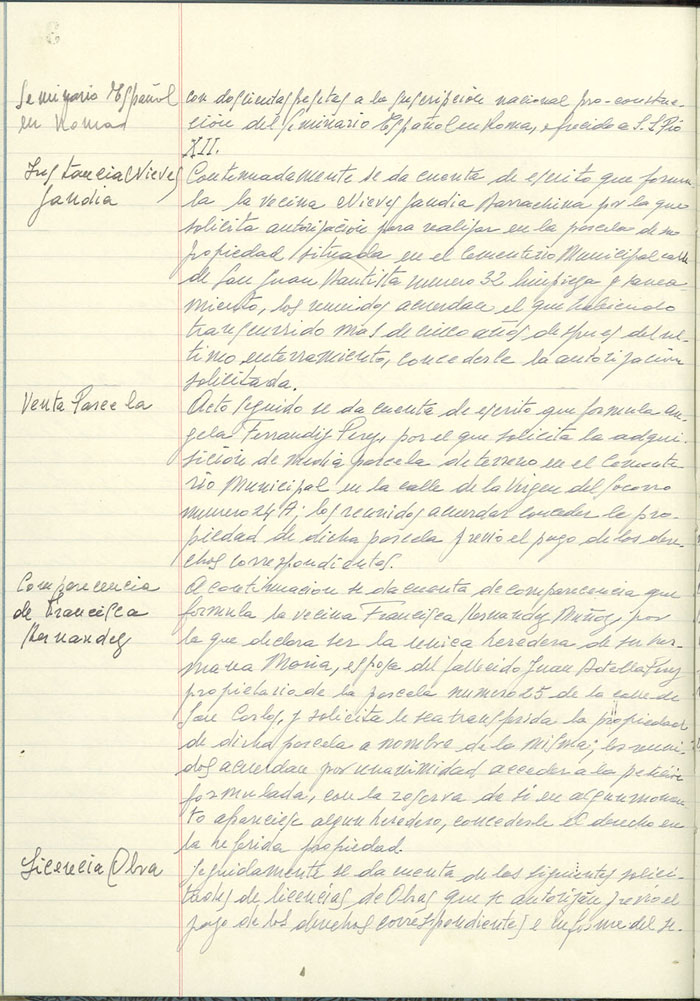 Seminario Español
en Roma
con doscientas pesetas a la suscripción nacional pro-construc-
ción del Seminario Español en Roma, ofrecido a S.S. Pio
XII.
Instancia Nieves
Jandia
Continuadamente se da cuenta de escrito que formu
la la vecina Nieves Jandia Barrachina por la que
solicita autorización para realizar en la parcela de su
propiedad situada en el Cementerio Municipal calle
de San Juan Bautista numero 32 limpieza y sanea
miento, los reunidos acuerdan el que habiendo
transcurrido mas de cinco años despues del ul-
timo enterramiento, concederle la autorización
solicitada.
Venta Parcela
Acto seguido se da cuenta de escrito que formula An
gela Ferrandiz Perez, por el que solicita la adqui-
sición de media parcela de terreno en el Cemente
rio Municipal en la calle de la Virgen del Socorro
numero 24 A; los reunidos acuerdan conceder la pro-
piedad de dicha parcela previo el pago de los dere-
chos correspondientes.
Comparecencia
de Francisca
Hernandez
A continuacion se da cuenta de comparecencia que
formula la vecina Francisca Hernandez Muñoz, por
la que declara ser la unica heredera de su her-
mana Maria, esposa del fallecido Juan Perez
propietario de la parcela numero 25 de la calle de
San Carlos, y solicita le sea transferida la propiedad
de dicha parcela a nombre de la misma; los reuni-
dos acuerdan por unanimidad acceder a la petición
formulada, con la reserva de si en algun momen
to apareciese algun heredero, concederle el derecho en
la referida propiedad.
Licencia Obra
Seguidamente se da cuenta de las siguientes solici-
tudes de licencias de Obras que se autorizan previo el
pago de los derechos correspondientes e informe del se.